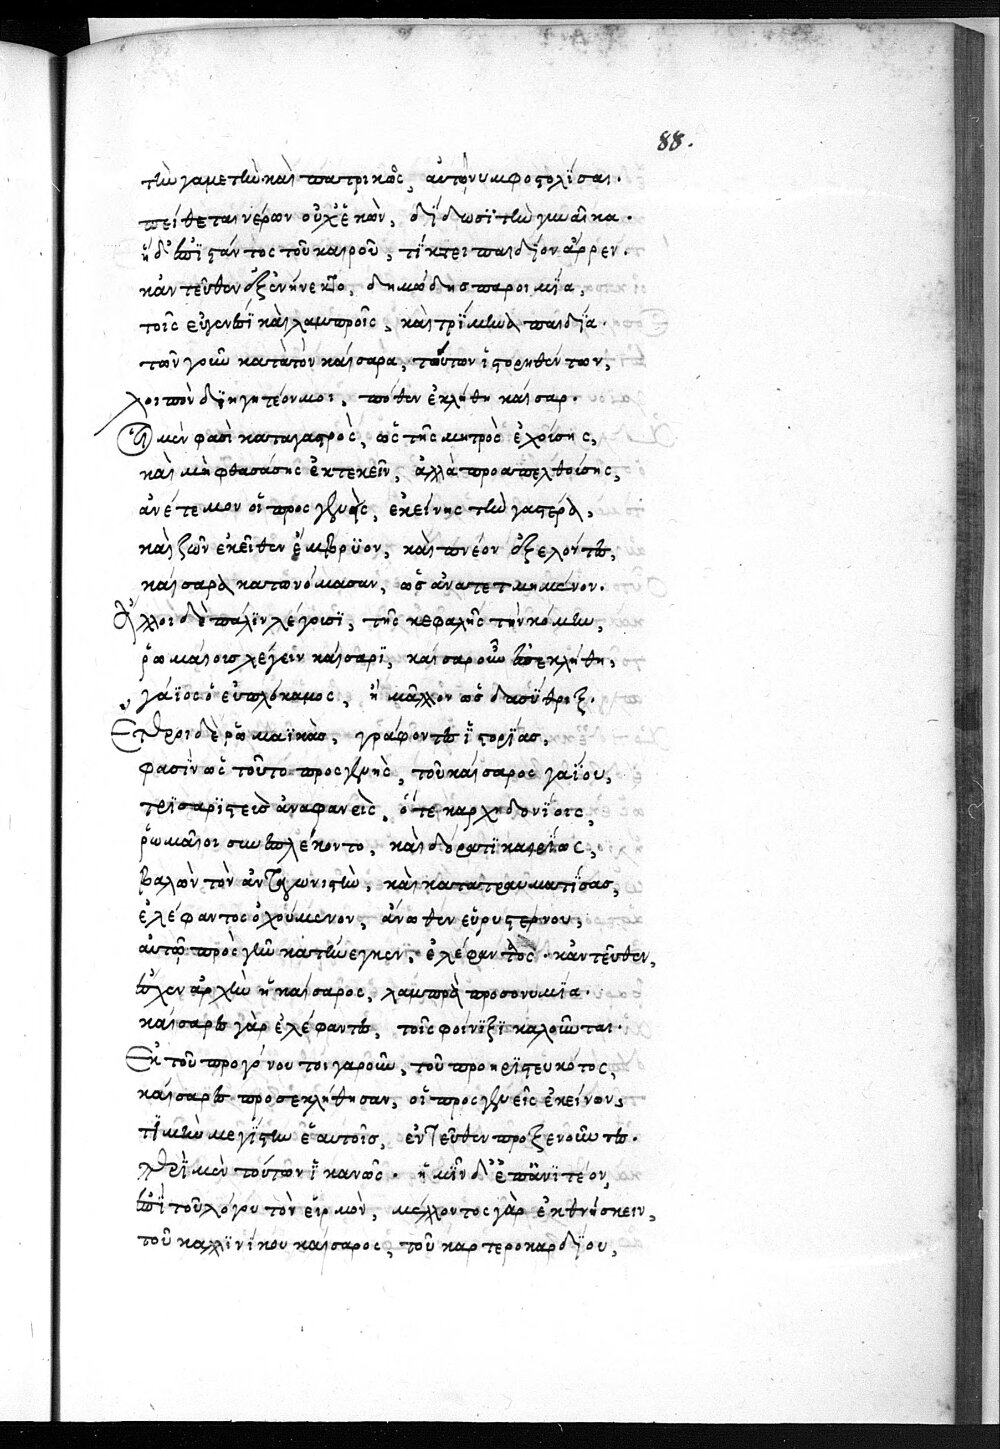 88.
τὴν γαμετὴν καὶ πατρικῶς, αὐτὸν νυμφοστολῆσαι.
πείθεται νέρων οὐχ ἑκὼν, δίδωσι τὴν γυναῖκα.
ἡ δ' ἐπιστάντος τοῦ καιροῦ, τίκτει παιδίον ἄρρεν.
κἀντεῦθεν ἐξενήνεκτο, δημώδης παροιμία,
τοῖς εὐγενέσι καὶ λαμπροῖς, καὶ τρίμηνα παιδία.
τῶν γοῦν κατὰ τὸν καίσαρα, τούτων ἱστορηθέντων,
λοιπὸν διηγητέον μοι, πόθεν ἐκλήθη καίσαρ.
Οἱ μέν φασὶ καταγαστρὸς, ὡς τῆς μητρὸς ἐχούσης,
καὶ μὴ φθασάσης ἐκτεκεῖν, ἀλλὰ προαπελθούσης,
ἀνέτεμον οἱ προσγενεῖς, ἐκείνης τὴν γαστέρα,
καὶ ζῶν ἐκεῖθεν ἔμβρυον, καὶ πνέον ἐξελόντες,
καίσαρα κατωνόμασαν, ὡς ἀνατετμημένον.
Ἄλλοι δὲ πάλιν λέγουσι, τῆς κεφαλῆς τὴν κόμην,
ῥωμαίοις λέγειν καίσαρι, καίσαρ οὖν ἐπεκλήθη,
γάϊος ὁ εὐπλόκαμος, ἢ μᾶλλον ὡς δασύθριξ.
Ἕτεροι δὲ ῥωμαϊκὰς, γράφοντες ἱστορίας,
φασὶν ὡς τοῦτο προσγενὴς, τοῦ καίσαρος γαΐου,
τρισαριστεὺς ἀναφανεὶς, ὅτε καρχηδονίοις,
ῥωμαῖοι συνεπλέκοντο, καὶ δόρατι καιρίως,
βαλὼν τὸν ἀνταγωνιστὴν, καὶ κατατραυματίσας,
ἐλέφαντος ὀχούμενον, ἄνωθεν εὐρυστέρνου,
αὐτῷ πρὸς γῆν κατήνεγκεν, ἐλέφαντος. κἀντεῦθεν,
ἔσχεν ἀρχὴν ἡ καίσαρος, λαμπρὰ προσονυμία.
καίσαρες γὰρ ἐλέφαντες, τοῖς φοίνιξι καλοῦνται.
Ἐκ τοῦ προγόνου τοιγαροῦν, τοῦ προηριστευκότος,
καίσαρες προσεκλήθησαν, οἱ προσγενεῖς ἐκείνου,
τιμὴν μεγίστην ἑαυτοῖς, ἐντεῦθεν προξενοῦντες.
περὶ μὲν τούτων ἱκανῶς. ἡμῖν δ' ἐπανιτέον,
ἐπὶ τοῦ λόγου τὸν εἱρμὸν, μέλλοντος γὰρ ἐκθνήσκειν,
τοῦ καλλινίκου καίσαρος, τοῦ καρτεροκαρδίου,